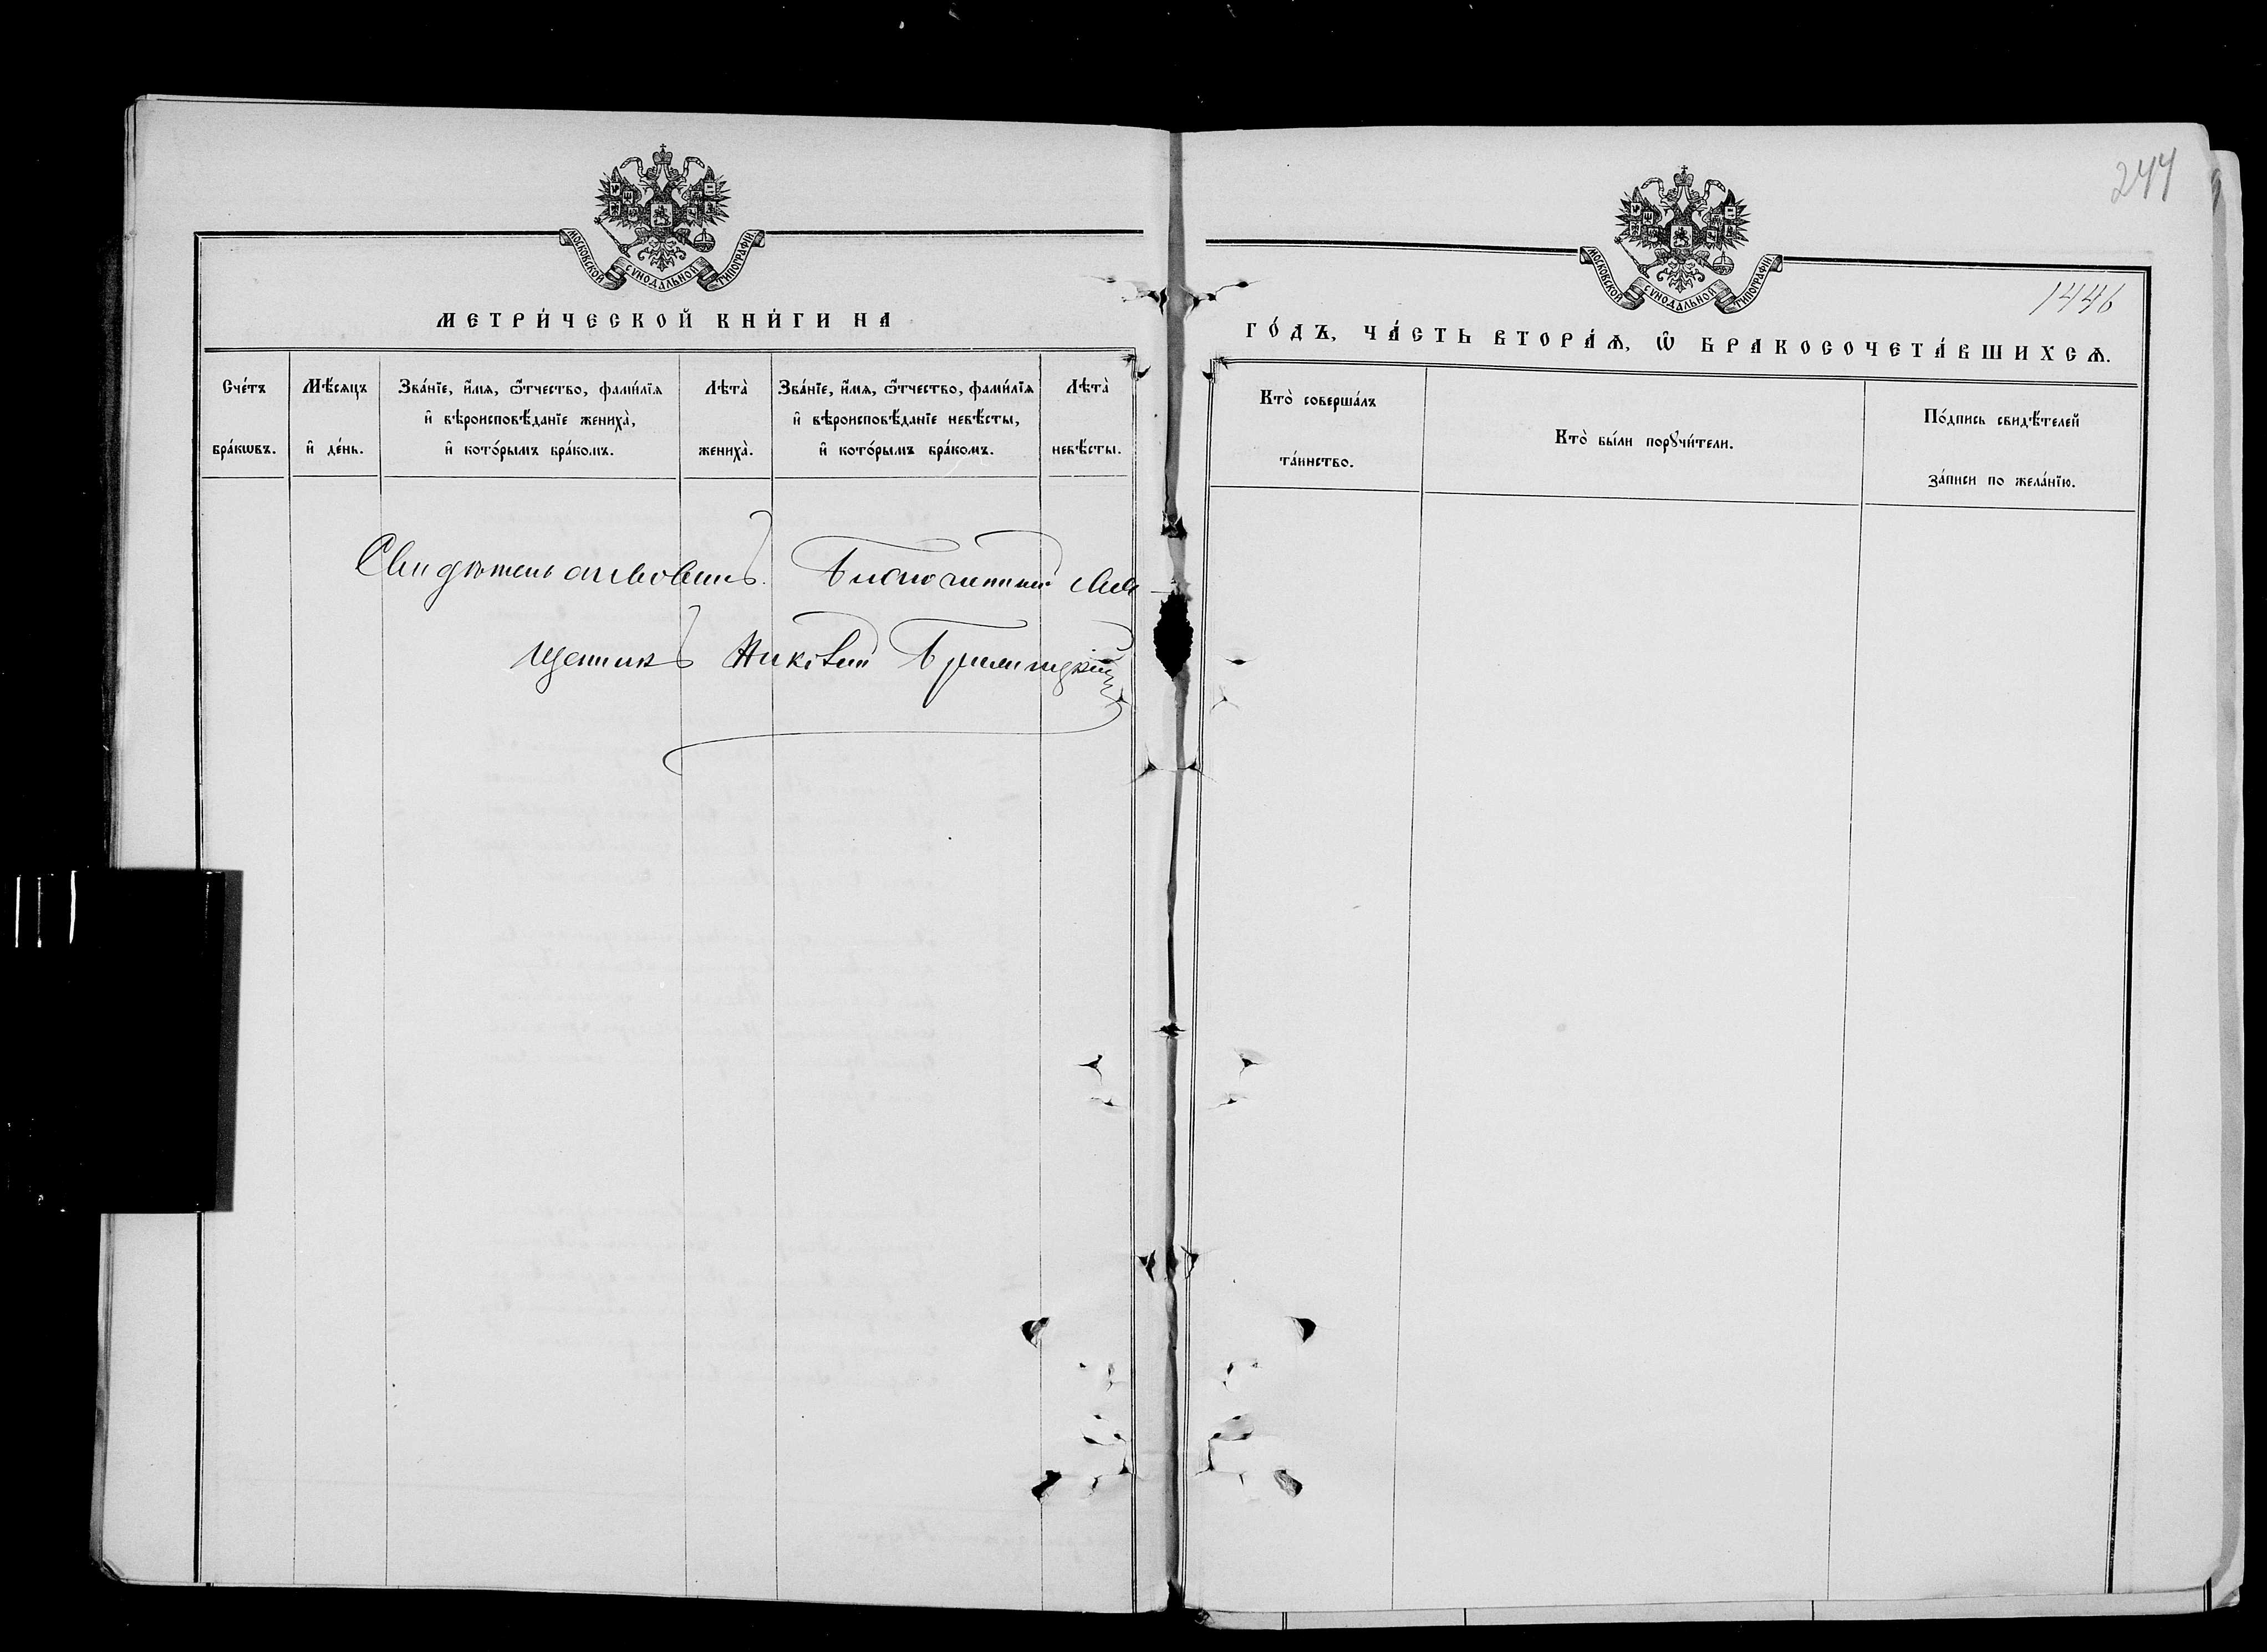 МОСКОВСКОЙ СѴНОДАЛЬНОЙ ТИПОГРАФІИ
МЕТРИ́ЧЕСКОЙ КНИ́ГИ НА
Сче́тъ бра́кѡвъ.
Мѣ́сяцъ и҆ де́нь.
Зва́нїе, и҆́мя, ѻ҆́тчество, фами́лїя
и҆ вѣроисповѣ́данїе жениха̀,
и҆ кото́рымъ бра́комъ.
Лѣта̀ жениха̀.
Зва́нїе, и҆́мя, ѻ҆́тчество, фами́лїя
и҆ вѣроисповѣ́данїе невѣ́сты,
и҆ кото́рымъ бра́комъ.
Лѣта̀ невѣ́сты.
Свидѣтельствовалъ Благочинный Свя-
щенникъ
244
МОСКОВСКОЙ СѴНОДАЛЬНОЙ ТИПОГРАФІИ
1446
ГО́ДЪ, ЧА́СТЬ ВТОРА́Ѧ, Ѡ҆ БРАКОСОЧЕТА́ВШИХСѦ.
Кто̀ соверша́лъ
та́инство.
Кто̀ бы́ли порꙋчи́тели.
По́дпись свидѣ́телей
за́писи по жела́нїю.